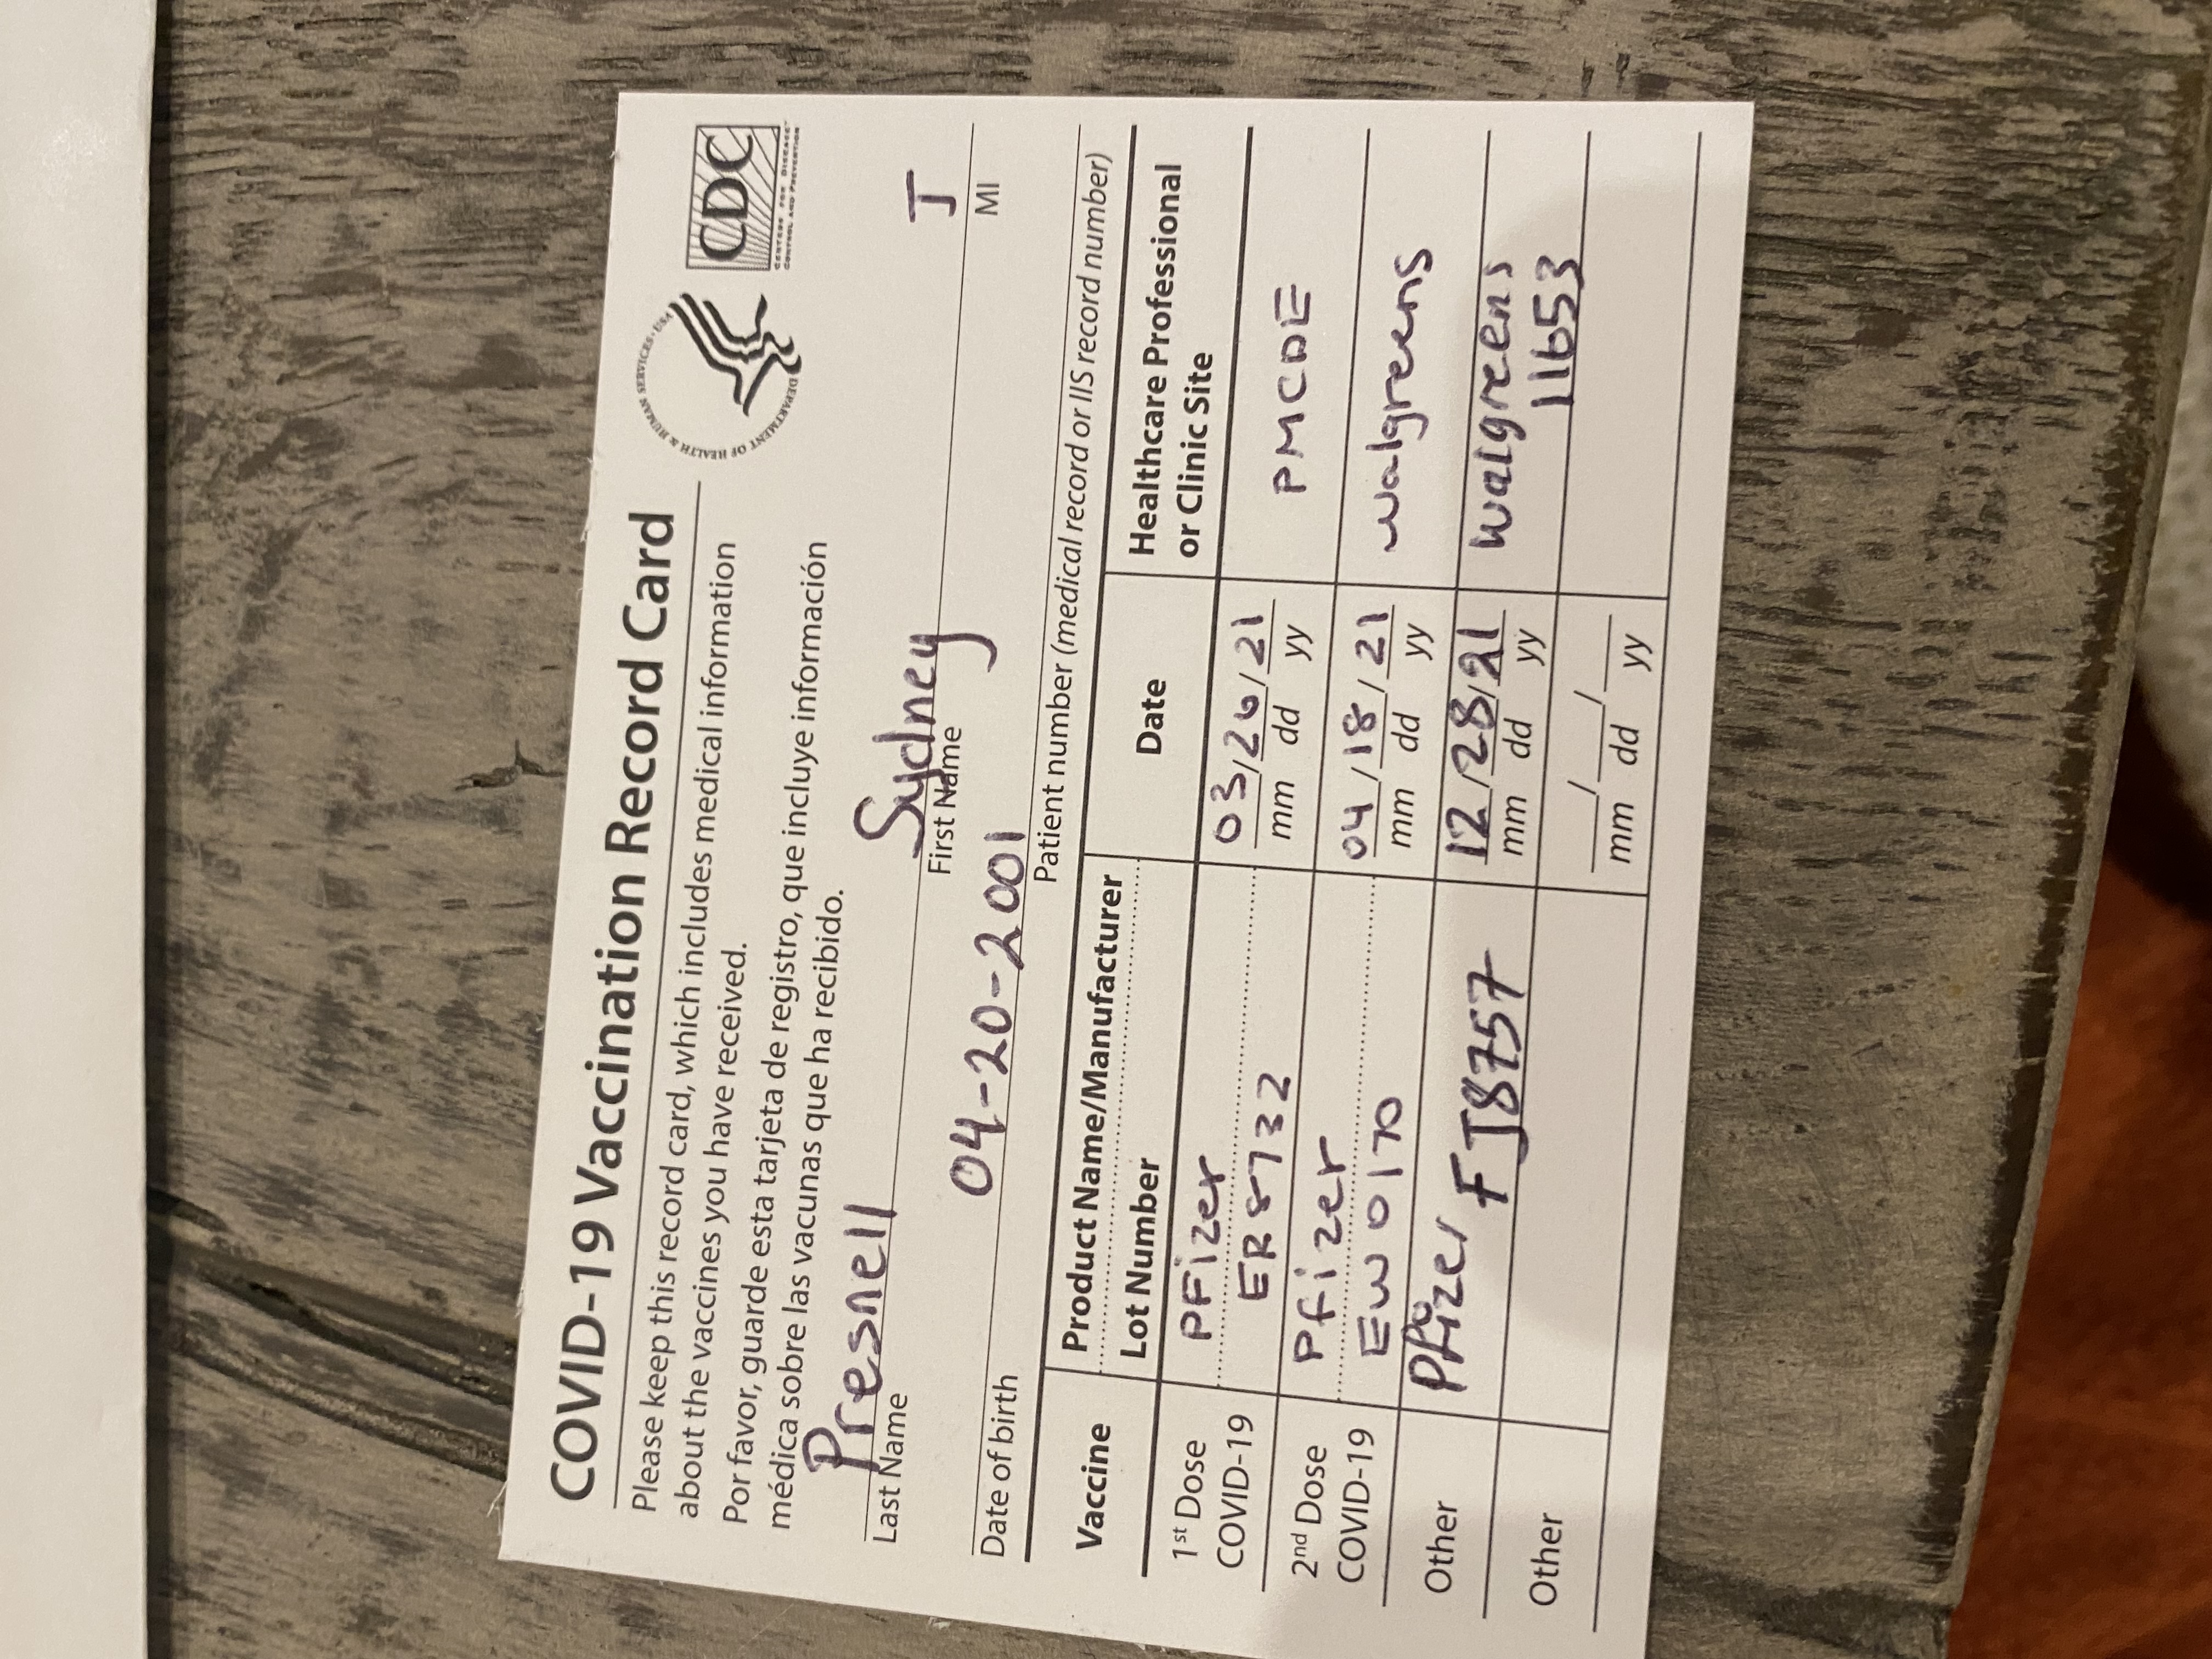 COVID-19 Vaccination Record Card
Please keep this record card, which includes medical information
about the vaccines you have received.
Por favor, guarde esta tarjeta de registro, que incluye información
médica sobre las vacunas que ha recibido.
DEPARTMENT OF HEALTH & HUMAN SERVICES · USA
CDC
CENTERS FOR DISEASE
CONTROL AND PREVENTION
Presnell Sydney J
Last Name First Name MI
04-20-2001
Date of birth Patient number (medical record or IIS record number)
Vaccine Product Name/Manufacturer Date Healthcare Professional
Lot Number or Clinic Site
1st Dose PFizer 03/26/21 PMCDE
COVID-19 ER8732 mm dd yy
2nd Dose Pfizer 04/18/21 walgreens
COVID-19 EW0170 mm dd yy
Other Pfizer FJ8757 12/28/21 Walgreens
mm dd yy 11653
Other / /
mm dd yy